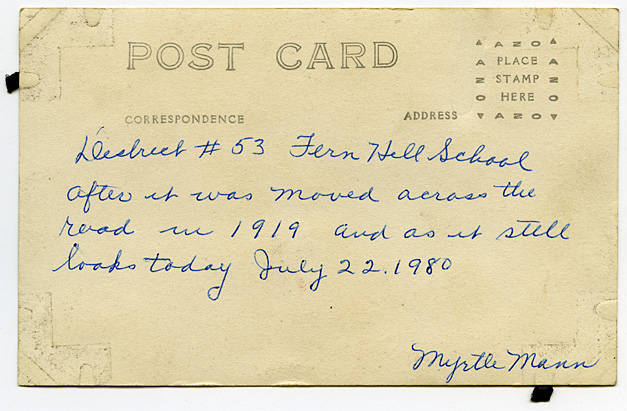 POST CARD
AZO
PLACE
STAMP
HERE
AZO
AZO
AZO
CORRESPONDENCE
ADDRESS
District # 53 Fern Hill School
after it was moved across the
road in 1919 and as it still
looks today July 22. 1980
Myrtle Mann